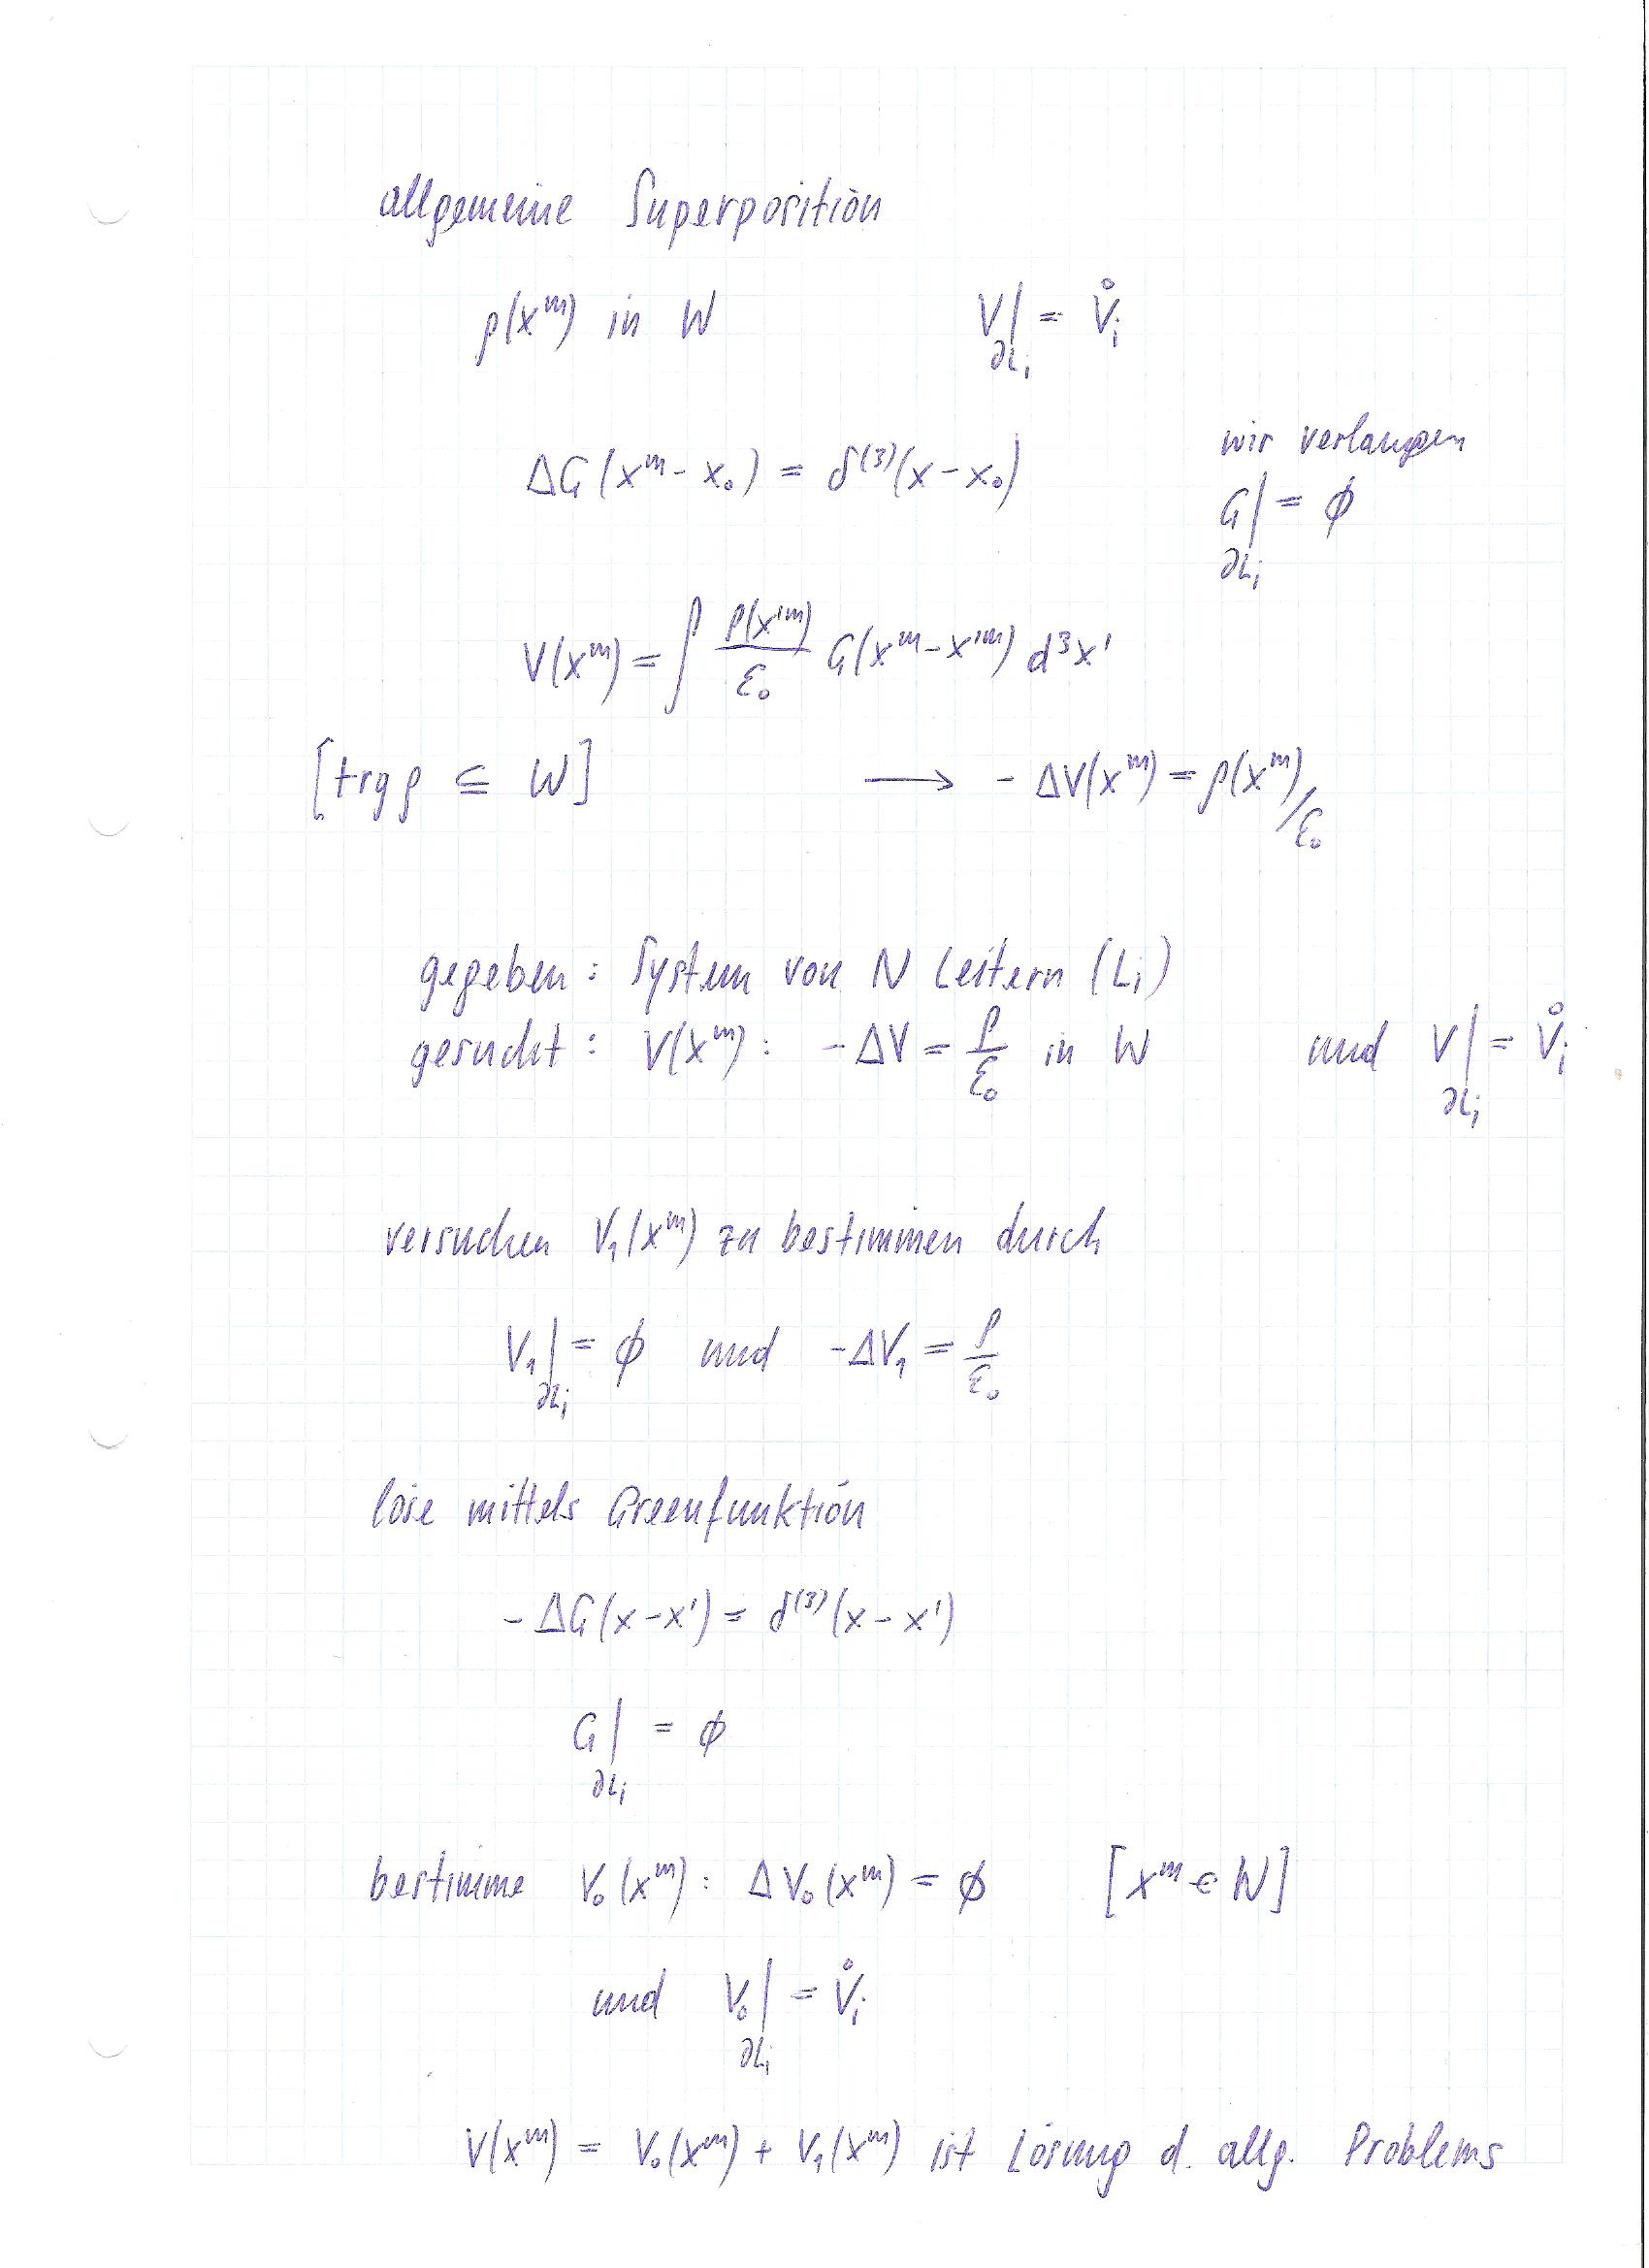 allgemeine Superposition
ρ(x^m) in W   V|_∂Li = V̊_i
ΔG(x^m - x_0) = δ^(3)(x - x_0)   wir verlangen
G|_∂Li = ϕ
V(x^m) = ∫ ρ(x'^m)/ε_0 G(x^m - x'^m) d^3x'
[trg ρ ⊆ W]   ⟶ -ΔV(x^m) = ρ(x^m)/ε_0
gegeben: System von N Leitern (L_i)
gesucht: V(x^m): -ΔV = ρ/ε_0 in W   und V|_∂Li = V̊_i
versuchen V_1(x^m) zu bestimmen durch
V_1|_∂Li = ϕ und -ΔV_1 = ρ/ε_0
löse mittels Greenfunktion
-ΔG(x - x') = δ^(3)(x - x')
G|_∂Li = ϕ
bestimme V_0(x^m): ΔV_0(x^m) = ϕ   [x^m ∈ W]
und V_0|_∂Li = V̊_i
V(x^m) = V_0(x^m) + V_1(x^m) ist Lösung d. allg. Problems